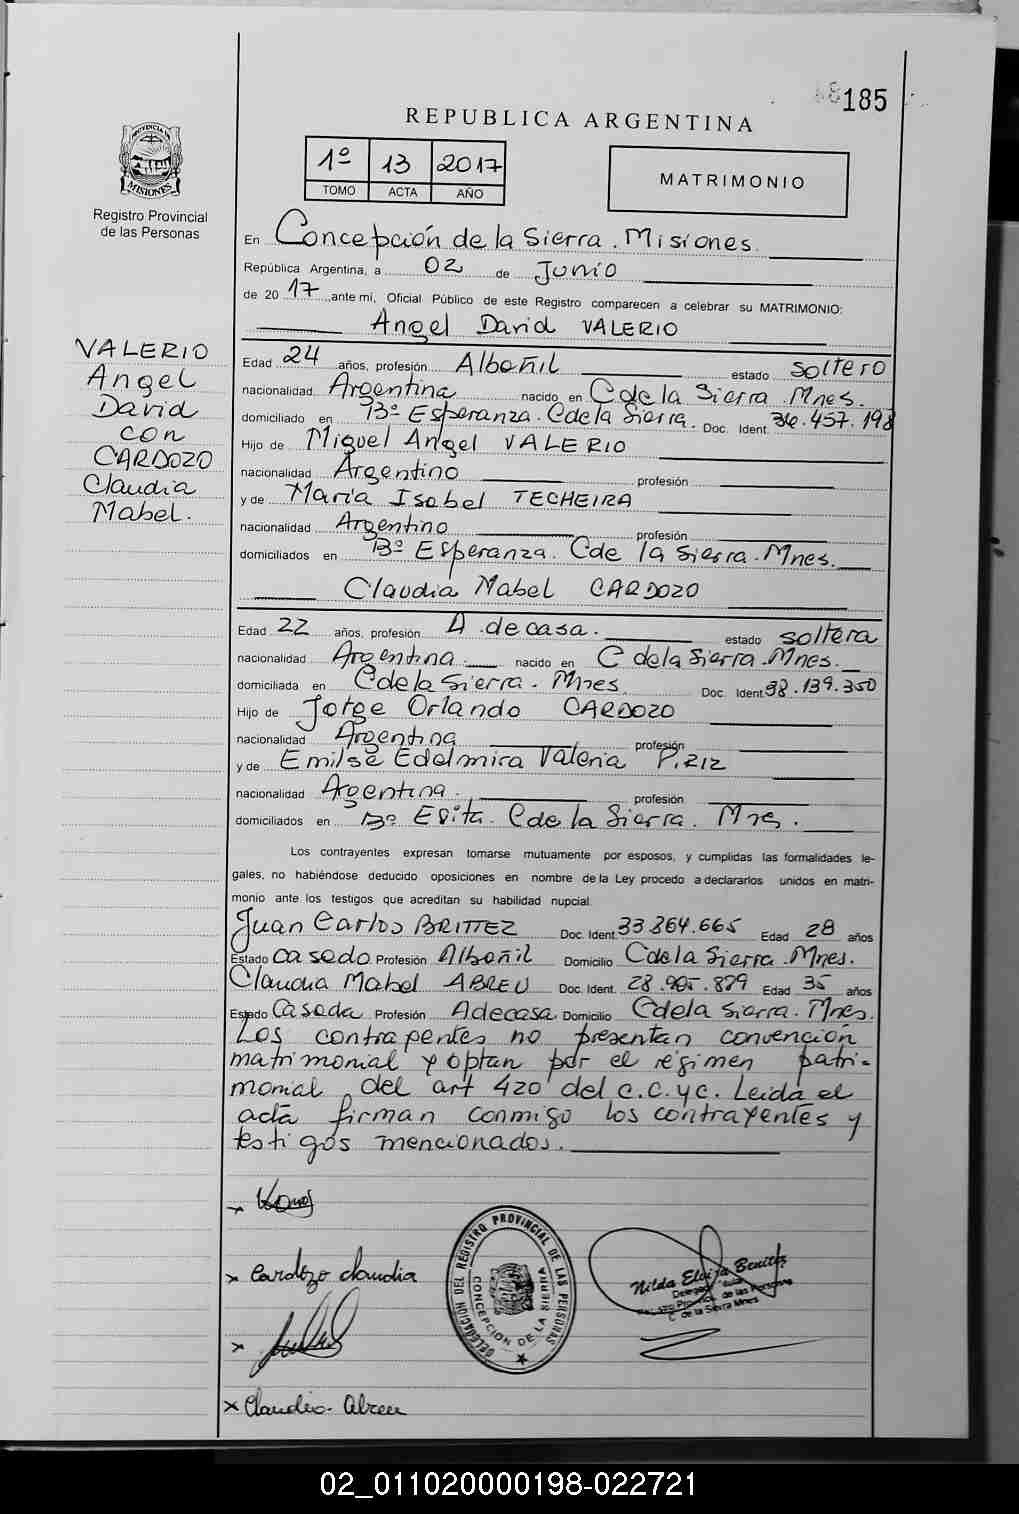 185
REPUBLICA ARGENTINA
PROVINCIA DE
MISIONES
Registro Provincial
de las Personas
1º 13 2017
TOMO ACTA AÑO
MATRIMONIO
En Concepción de la Sierra. Misiones.
República Argentina, a 02 de Junio
de 2017 ,ante mí, Oficial Público de este Registro comparecen a celebrar su MATRIMONIO:
Angel David VALERIO
VALERIO
Angel
David
con
CARDOZO
Claudia
Mabel.
Edad 24 años, profesión Albañil estado soltero
nacionalidad Argentina nacido en C de la Sierra. Mnes.
domiciliado en Bº Esperanza. C de la Sierra. Doc. Ident. 36.457.198
Hijo de Miguel Angel VALERIO
nacionalidad Argentino profesión
y de María Isabel TECHEIRA
nacionalidad Argentino profesión
domiciliados en Bº Esperanza. C de la Sierra. Mnes.
Claudia Mabel CARDOZO
Edad 22 años, profesión A. de casa. estado soltera
nacionalidad Argentina. nacido en C de la Sierra. Mnes.
domiciliada en C de la Sierra. Mnes. Doc. Ident 38.139.350
Hijo de Jorge Orlando CARDOZO
nacionalidad Argentina profesión
y de Emilse Edelmira Valeria PIRIZ
nacionalidad Argentina. profesión
domiciliados en Bº Evita. C de la Sierra. Mnes.
Los contrayentes expresan tomarse mutuamente por esposos, y cumplidas las formalidades le-
gales, no habiéndose deducido oposiciones en nombre de la Ley procedo a declararlos unidos en matri-
monio ante los testigos que acreditan su habilidad nupcial.
Juan Carlos BRITTEZ Doc. Ident. 33.864.665 Edad 28 años
Estado casado Profesión Albañil Domicilio C de la Sierra. Mnes.
Claudia Mabel ABREU Doc. Ident. 28. .899 Edad 35 años
Estado Casada Profesión A de casa Domicilio C de la Sierra. Mnes.
Los contrayentes no presentan convención
matrimonial y optan por el régimen patri-
monial del art 420 del C.C.yC. Leída el
acta firman conmigo los contrayentes y
testigos mencionados.
x
x Cardozo Claudia
x
x Claudia Abreu
DELEGACION DEL REGISTRO PROVINCIAL DE LAS PERSONAS
CONCEPCION DE LA SIERRA
Nilda Elvira Benitez
Delegada Titular
Registro Provincial de las Personas
C. de la Sierra Mnes
02_011020000198-022721